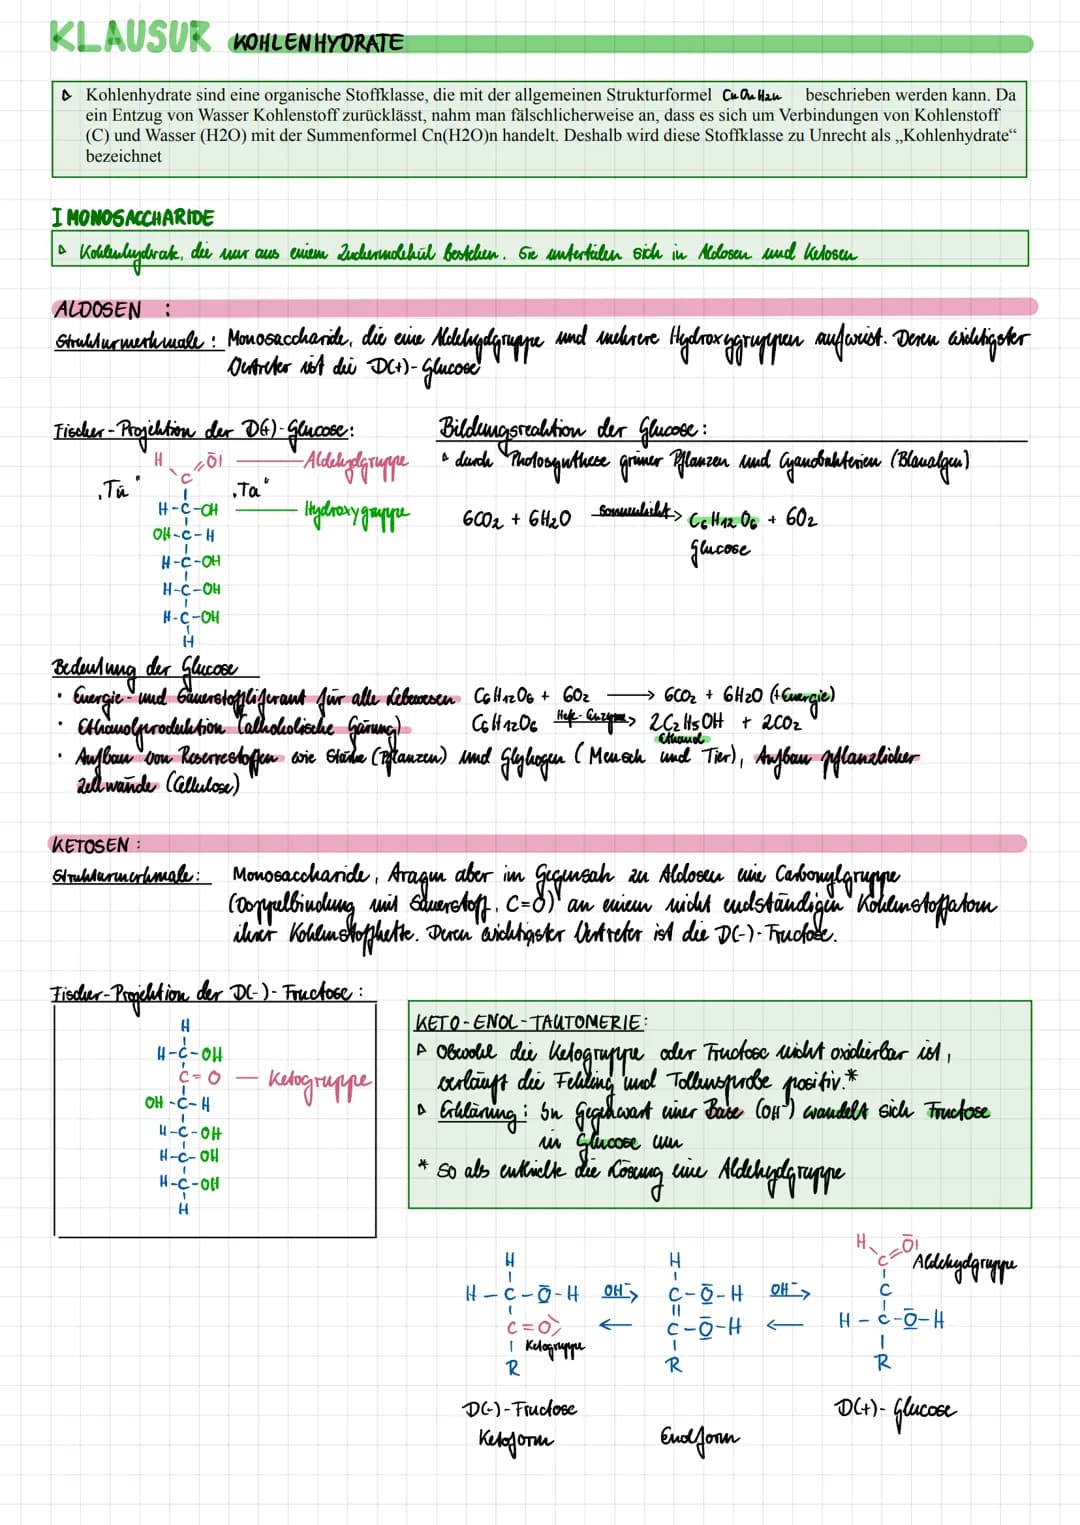 KLAUSUR KOHLENHYDRATE
Kohlenhydrate sind eine organische Stoffklasse, die mit der allgemeinen Strukturformel CnOnH2n beschrieben werden kann. Da
ein Entzug von Wasser Kohlenstoff zurücklässt, nahm man fälschlicherweise an, dass es sich um Verbindungen von Kohlenstoff
(C) und Wasser (H2O) mit der Summenformel Cn(H2O)n handelt. Deshalb wird diese Stoffklasse zu Unrecht als „Kohlenhydrate“
bezeichnet
I MONOSACCHARIDE
Kohlenhydrate, die nur aus einem Zuckermolekül bestehen. Sie unterteilen sich in Aldosen und Ketosen
ALDOSEN :
Strukturmerkmale: Monosaccharide, die eine Aldehydgruppe und mehrere Hydroxygruppen aufweist. Deren wichtigster
Vertreter ist die D(+)-Glucose
Fischer-Projektion der D(+)-Glucose:
H
O
C
Aldehydgruppe
„Tü"
„Ta"
H-C-OH
Hydroxygruppe
OH-C-H
H-C-OH
H-C-OH
H-C-OH
H
Bildungsreaktion der Glucose:
durch Photosynthese grüner Pflanzen und Cyanobakterien (Blaualgen)
6CO2 + 6H2O Sonnenlicht> C6H12O6 + 6O2
Glucose
Bedeutung der Glucose
• Energie- und Sauerstofflieferant für alle Lebewesen C6H12O6 + 6O2 → 6CO2 + 6H2O (+Energie)
• Ethanolproduktion (alkoholische Gärung) C6H12O6 Hefe-Enzyme> 2C2H5OH + 2CO2
Ethanol
• Aufbau von Reservestoffen wie Stärke (Pflanzen) und Glykogen (Mensch und Tier), Aufbau pflanzlicher
Zellwände (Cellulose)
KETOSEN :
Strukturmerkmale: Monosaccharide, tragen aber im Gegensatz zu Aldosen eine Carbonylgruppe
(Doppelbindung mit Sauerstoff, C=O) an einem nicht endständigen Kohlenstoffatom
ihrer Kohlenstoffkette. Deren wichtigster Vertreter ist die D(-)-Fructose.
Fischer-Projektion der D(-)-Fructose:
H
H-C-OH
C=O — Ketogruppe
OH-C-H
H-C-OH
H-C-OH
H-C-OH
H
KETO-ENOL-TAUTOMERIE:
Obwohl die Ketogruppe oder Fructose nicht oxidierbar ist,
verläuft die Fehling und Tollensprobe positiv.*
Erklärung: In Gegenwart einer Base (OH-) wandelt sich Fructose
in Glucose um
* so als enthielte die Lösung eine Aldehydgruppe
H
H-C-O-H
C=O
Ketogruppe
R
OH-> ←
H
C-O-H
C-O-H
R
OH-> ←
H
O
C
Aldehydgruppe
C
H-C-O-H
R
D(-)-Fructose
Ketoform
Endform
D(+)-Glucose